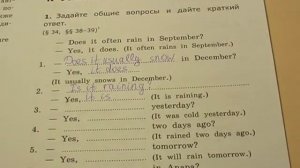 1. Задайте общие вопросы и дайте краткий
ответ.
(§ 34, §§ 38–39)
— Does it often rain in September?
— Yes, it does. (It often rains in September.)
1. — Does it usually snow in December?
— Yes, it does.
(It usually snows in December.)
2. — Is it raining?
— Yes, it is. (It is raining.)
3. — yesterday?
— Yes, (It was cold yesterday.)
4. — two days ago?
— Yes, (It rained two days ago.)
5. — tomorrow?
— Yes, (It will rain tomorrow.)
in Anapa?